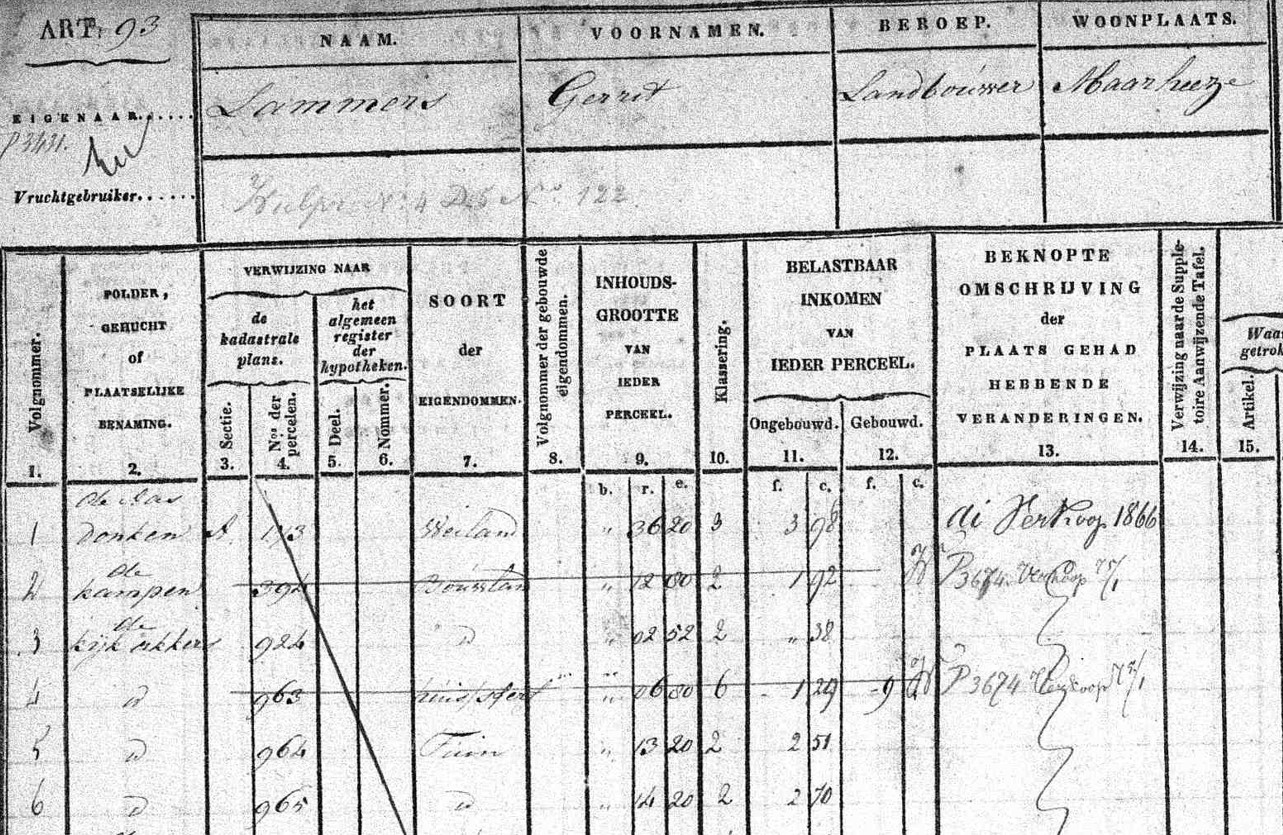 ART. 93
NAAM. VOORNAMEN. BEROEP. WOONPLAATS.
EIGENAAR...... Lammers Gerrit Landbouwer Maarheeze
P 3431.
Vruchtgebruiker...... Nº 4 D5 Nº 122
Volgnommer. 1.
POLDER, GEHUCHT of PLAATSELIJKE BENAMING. 2.
VERWIJZING NAAR
de kadastrale plans.
Sectie. 3.
Nos der percelen. 4.
het algemeen register der hypotheken.
Deel. 5.
Nommer. 6.
SOORT der EIGENDOMMEN. 7.
Volgnommer der gebouwde eigendommen. 8.
INHOUDS-GROOTTE VAN IEDER PERCEEL. 9.
Klassering. 10.
BELASTBAAR INKOMEN VAN IEDER PERCEEL.
Ongebouwd. 11.
Gebouwd. 12.
BEKNOPTE OMSCHRIJVING der PLAATS GEHAD HEBBENDE VERANDERINGEN. 13.
Verwijzing naar de Suppletoire Aanwijzende Tafel. 14.
Waa
getrok
Artikel. 15.
b. r. e. f. c. f. c.
1 donken A. 173 Weiland " 36 20 3 3 98 di Verkoop 1866
2 de kampen 394 Bouwlan " 12 80 2 1 92 P 3674 Verkoop
3 de kijk akkers 924 d " 02 52 2 " 38
4 d 963 huis " 06 80 6 1 29 9 P 3674 Verkoop
5 d 964 Tuin " 13 20 2 2 51
6 d 965 d " 14 20 2 2 70